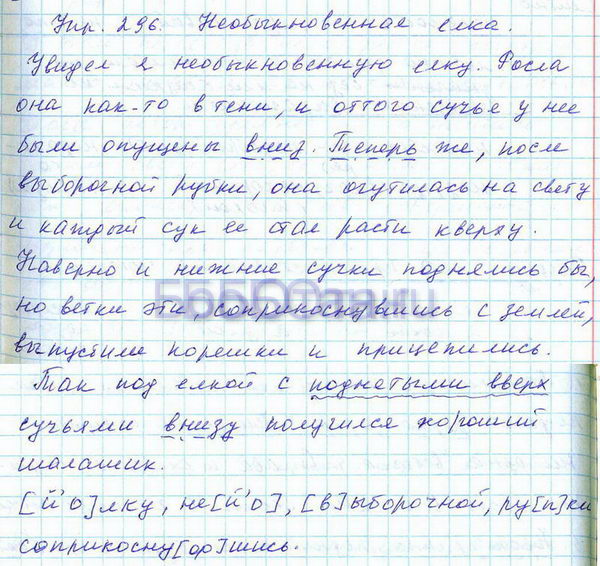 Упр. 296. Необыкновенная елка.
Увидел я необыкновенную елку. Росла
она как-то в тени, и оттого сучье у нее
были опущены вниз. Теперь же, после
выборочной рубки, она очутилась на свету
и каждый сук ее стал расти кверху.
Наверно и нижние сучки поднялись бы,
но ветки эти, соприкоснувшись с землей,
выпустили корешки и прицепились.
Так под елкой с поднятыми вверх
сучьями внизу получился хороший
шалашик.
[й'о]лку, не[й'о], [в]ыборочной, ру[п]ки
соприкосну[ф]шись.